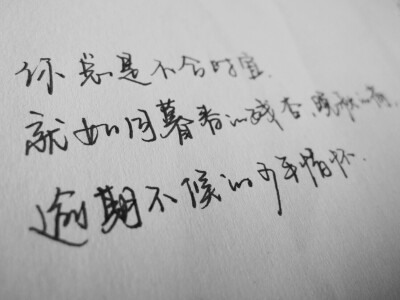 你总是不合时宜.
就如同暮春的残杏、晚秋的雨.
逾期不候的少年情怀.